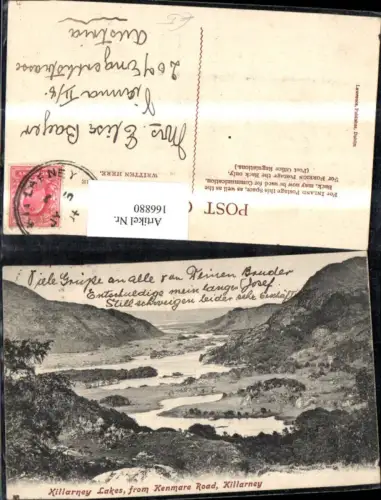 Mrs. Elise Bayer
Vienna II/8.
20 Engerthstrasse
Austria
POST C
For INLAND Postage this Space, as well as the
Back, may now be used for Communication.
For FOREIGN Postage the Back only.
(Post Office Regulations.)
WRITTEN HERE.
Lawrence, Publisher, Dublin
KILLARNEY
Artikel Nr.
166880
Viele Grüße an alle von Deinen Bruder
Entschuldige mein langes Josef.
Stillschweigen leider sehr
Killarney Lakes, from Kenmare Road, Killarney